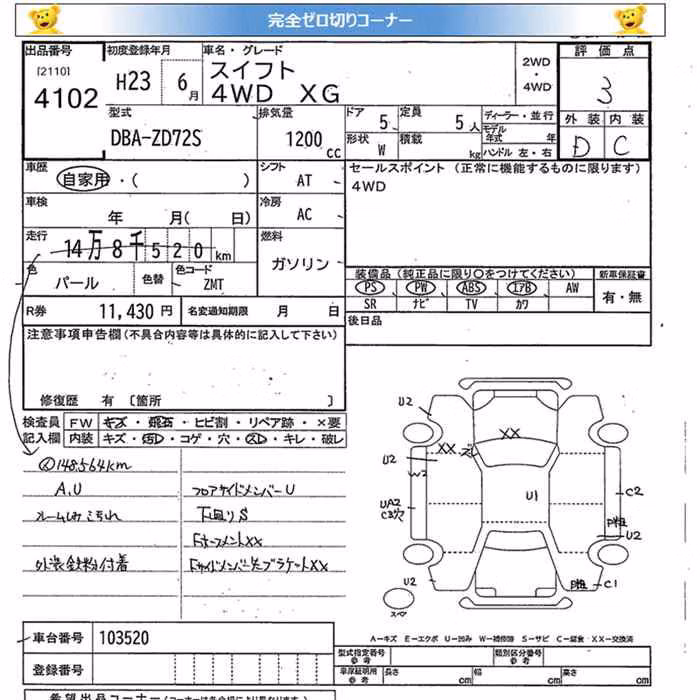 完全ゼロ切りコーナー
出品番号 初度登録年月 車名・グレード 評価点
[2110] 4102 H23 6月 スイフト 4WD XG 2WD・4WD 3
外装 内装
D C
型式 排気量 ドア 定員 ディーラー・並行
DBA-ZD72S 1200cc 5 5人 モデル年式 年
形状 積載
W kg ハンドル 左・右
車歴 シフト セールスポイント (正常に機能するものに限ります)
自家用・( ) AT 4WD
車検 冷房
年 月( 日) AC
走行 燃料
14万8千520km ガソリン
色 色替 色コード 装備品 (純正品に限り〇をつけてください) 新車保証書
パール ZMT PS PW ABS エアB AW 有・無
SR ナビ TV カワ
R券 11,430円 名変通知期限 月 日 後日品
注意事項申告欄(不具合内容等は具体的に記入して下さい)
修復歴 有 〔箇所 〕
検査員 FW キズ・飛石・ヒビ割・リペア跡・×要
記入欄 内装 キズ・汚レ・コゲ・穴・スレ・キレ・破レ
148564km
A.U フロアサイドメンバーU
ルームしみこゴれ 下回りS
FホースメントXX
外装鉄粉付着 Fサイドメンバー先ブラケットXX
U2
XX
XX ズレ
U2
W2
U1
UA2
C3穴
C2
P粗
U2
U2
P粗 C1
スペア
A-キズ E-エクボ U-凹み W-補修跡 S-サビ C-腐食 XX-交換済
車台番号 103520
型式指定番号 参考 類別区分番号 参考
登録番号 車庫証明用 参考 長さ cm 幅 cm 高さ cm
希望出品コーナー